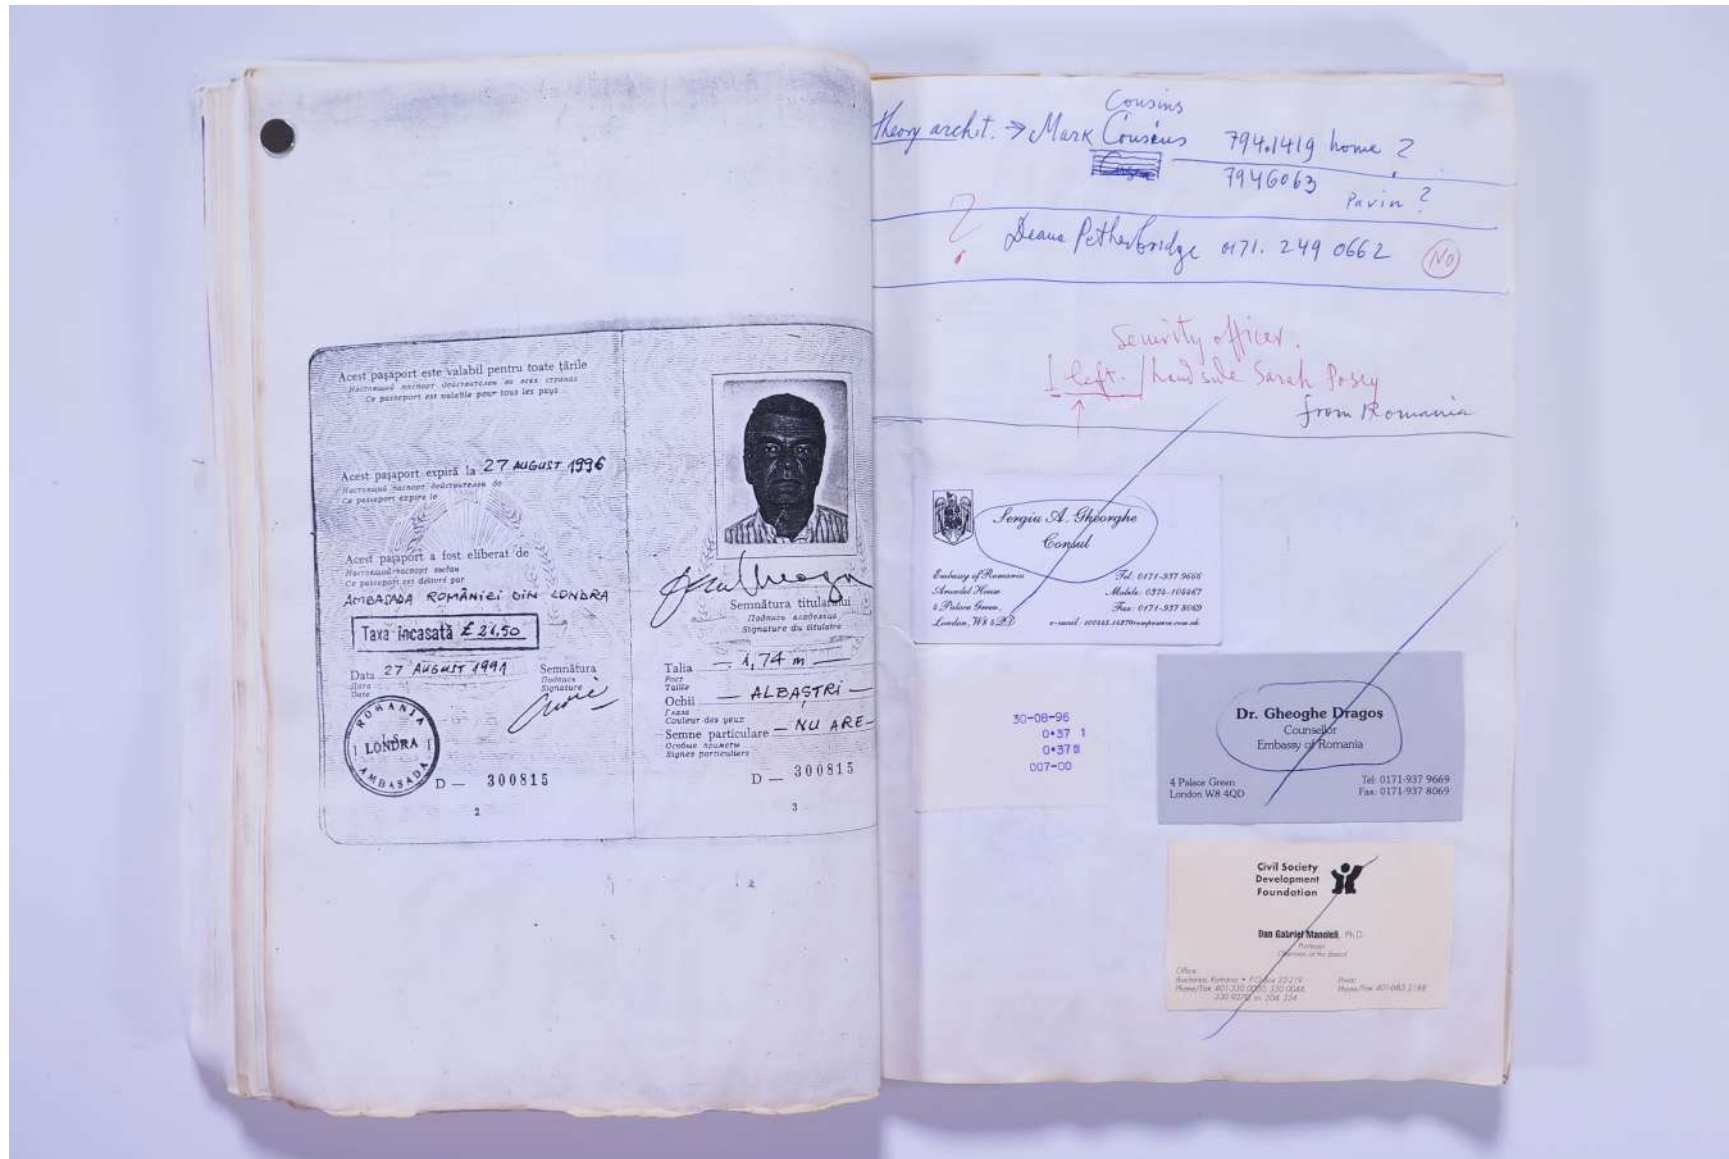 Acest pașaport este valabil pentru toate țările
Настоящий паспорт действителен во всех странах
Ce passeport est valable pour tous les pays
Acest pașaport expiră la 27 AUGUST 1996
Настоящий паспорт действителен до
Ce passeport expire le
Acest pașaport a fost eliberat de
Настоящий паспорт выдан
Ce passeport est délivré par
AMBASADA ROMÂNIEI DIN LONDRA
Taxa încasată £ 21,50
Data 27 AUGUST 1991
Дата
Date
Semnătura
Подпись
Signature
ROMANIA
LONDRA
AMBASADA
D — 300815
2
Semnătura titularului
Подпись владельца
Signature du titulaire
Talia — 1,74 m —
Рост
Taille
Ochii — ALBAȘTRI —
Глаза
Couleur des yeux
Semne particulare — NU ARE —
Особые приметы
Signes particuliers
D — 300815
3
Cousins
Theory archit. → Mark Cousins 794.1419 home ?
7946063
Pavin ?
? Deana Petherbridge 0171. 249 0662 NO
Security officer.
1 left. / hand side Sarah Posey
from Romania
Sergiu A. Gheorghe
Consul
Embassy of Romania
Arundel House
4 Palace Green,
London, W8 4QD
Tel: 0171-937 9666
Mobile: 0374-104467
Fax: 0171-937 8069
30-08-96
0•37 1
0•37
007-00
Dr. Gheoghe Dragos
Counsellor
Embassy of Romania
4 Palace Green
London W8 4QD
Tel: 0171-937 9669
Fax: 0171-937 8069
Civil Society
Development
Foundation
Dan Gabriel Manoleli, Ph.D.
Professor
Chairman of the Board
Office:
Bucharest, Romania • P.O. Box 22-219
Phone/Fax 401-330 0044,
Phone/Fax 401-683 3188